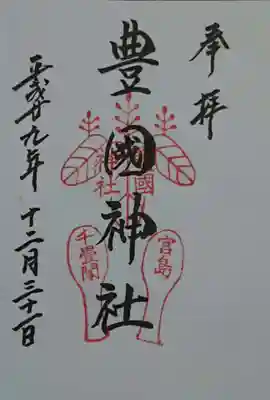 奉拝
豊國神社
豊國
神社
宮島
千畳閣
平成廿九年 十二月三十一日